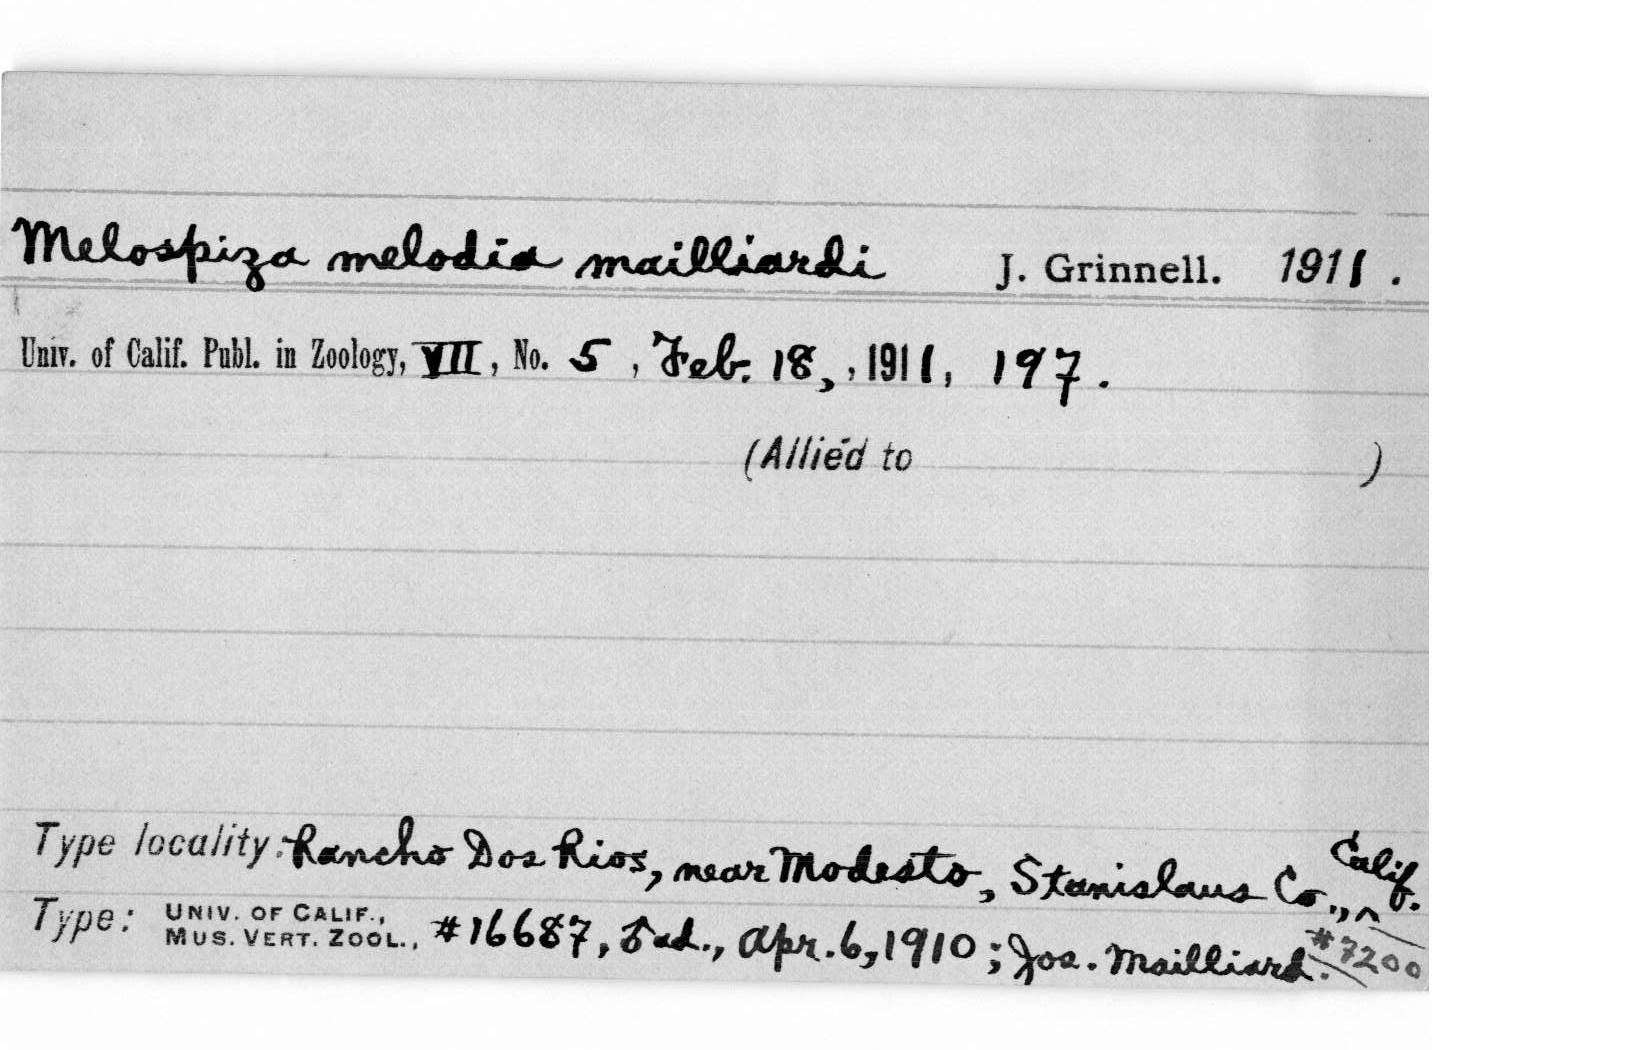 Melospiza melodia mailliardi J. Grinnell. 1911.
Univ. of Calif. Publ. in Zoology, VII, No. 5, Feb. 18, , 1911, 197.
(Allied to )
Type locality: Rancho Dos Rios, near Modesto, Stanislaus Co., ^ Calif.
Type: UNIV. OF CALIF., MUS. VERT. ZOOL., #16687, ad., Apr. 6, 1910; Jos. Mailliard.
#7200